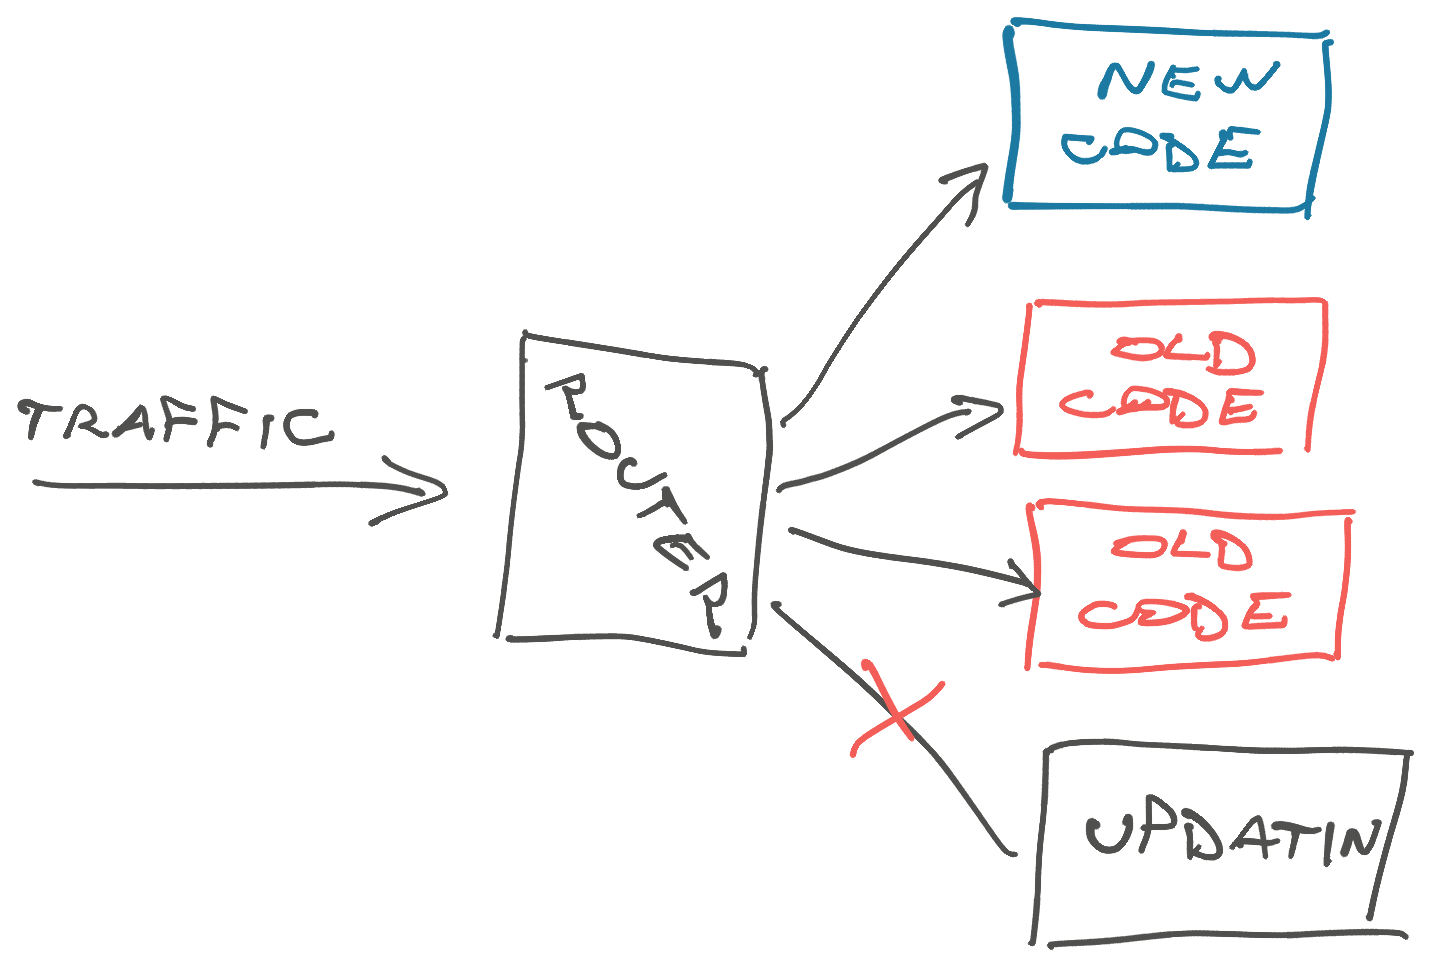 TRAFFIC
ROUTER
NEW
CODE
OLD
CODE
OLD
CODE
UPDATIN